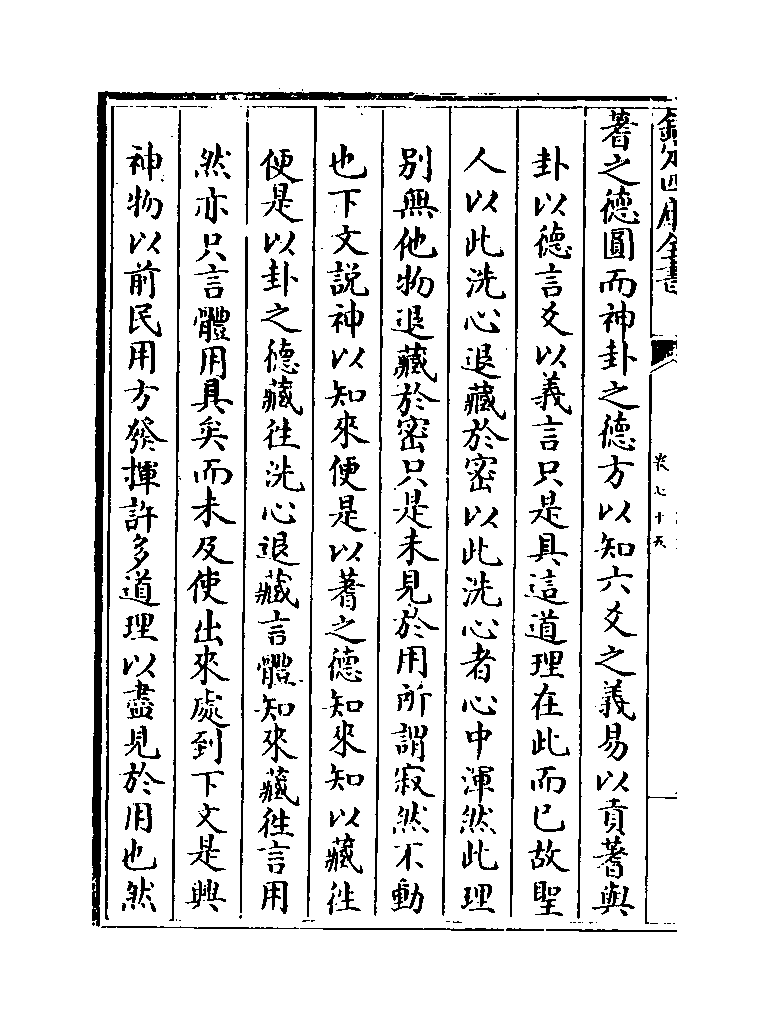 欽定四庫全書
卷七十五
蓍之德圓而神卦之德方以知六爻之義易以貢蓍與
卦以德言爻以義言只是具這道理在此而已故聖
人以此洗心退藏於密以此洗心者心中渾然此理
別無他物退藏於密只是未見於用所謂寂然不動
也下文説神以知來便是以蓍之德知來知以藏往
便是以卦之德藏往洗心退藏言體知來藏往言用
然亦只言體用具矣而未及使出來處到下文是興
神物以前民用方發揮許多道理以盡見於用也然